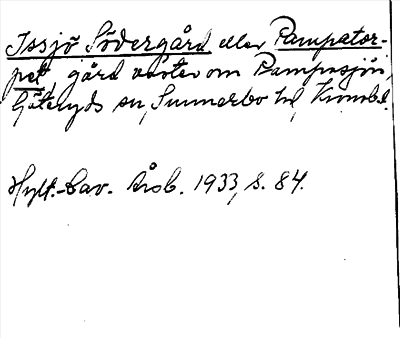 Issjö Södergård eller Pampator-
pet, gård väster om Pampasjön,
Göteryds sn, Sunnerbo hd, Kronobl.
Hylt.-Cav. årsb. 1933, s. 84.